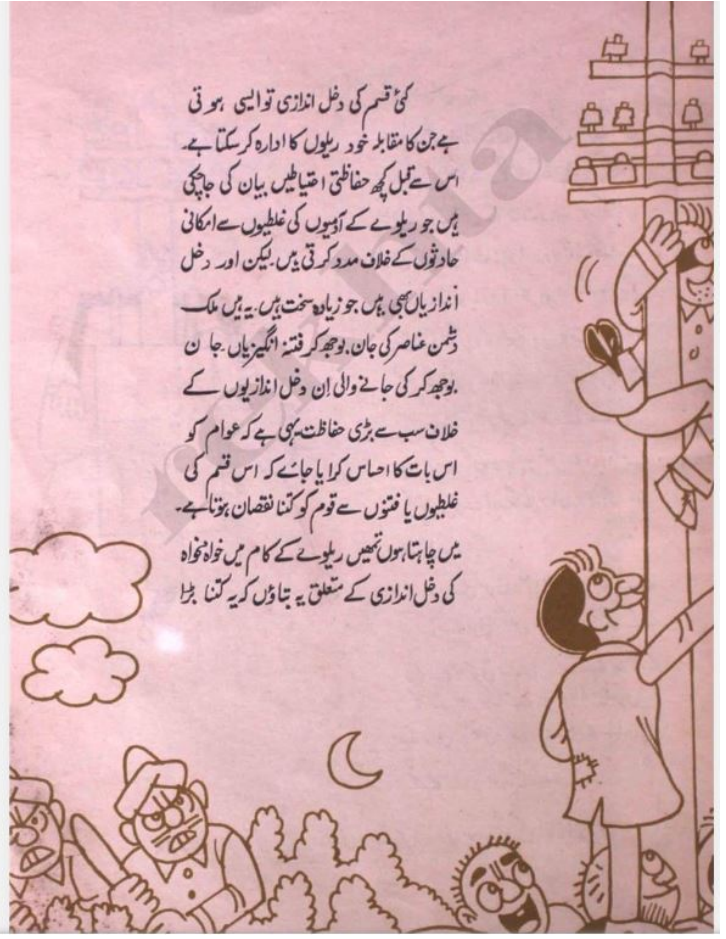 کئی قسم کی دخل اندازی تو ایسی ہوتی
ہے جن کا مقابلہ خود ریلوں کا ادارہ کر سکتا ہے۔
اس سے قبل کچھ حفاظتی احتیاطیں بیان کی جا چکی
ہیں جو ریلوے کے آدمیوں کی غلطیوں سے امکانی
حادثوں کے خلاف مدد کرتی ہیں۔ لیکن اور دخل
اندازیاں بھی ہیں جو زیادہ سخت ہیں۔ یہ ہیں ملک
دشمن عناصر کی جان بوجھ کر فتنہ انگیزیاں۔ جان
بوجھ کر کی جانے والی اِن دخل اندازیوں کے
خلاف سب سے بڑی حفاظت یہی ہے کہ عوام کو
اس بات کا احساس کرایا جائے کہ اس قسم کی
غلطیوں یا فتنوں سے قوم کو کتنا نقصان ہوتا ہے۔
میں چاہتا ہوں تمھیں ریلوے کے کام میں خواہ مخواہ
کی دخل اندازی کے متعلق یہ بتاؤں کہ یہ کتنا بڑا
rekhta